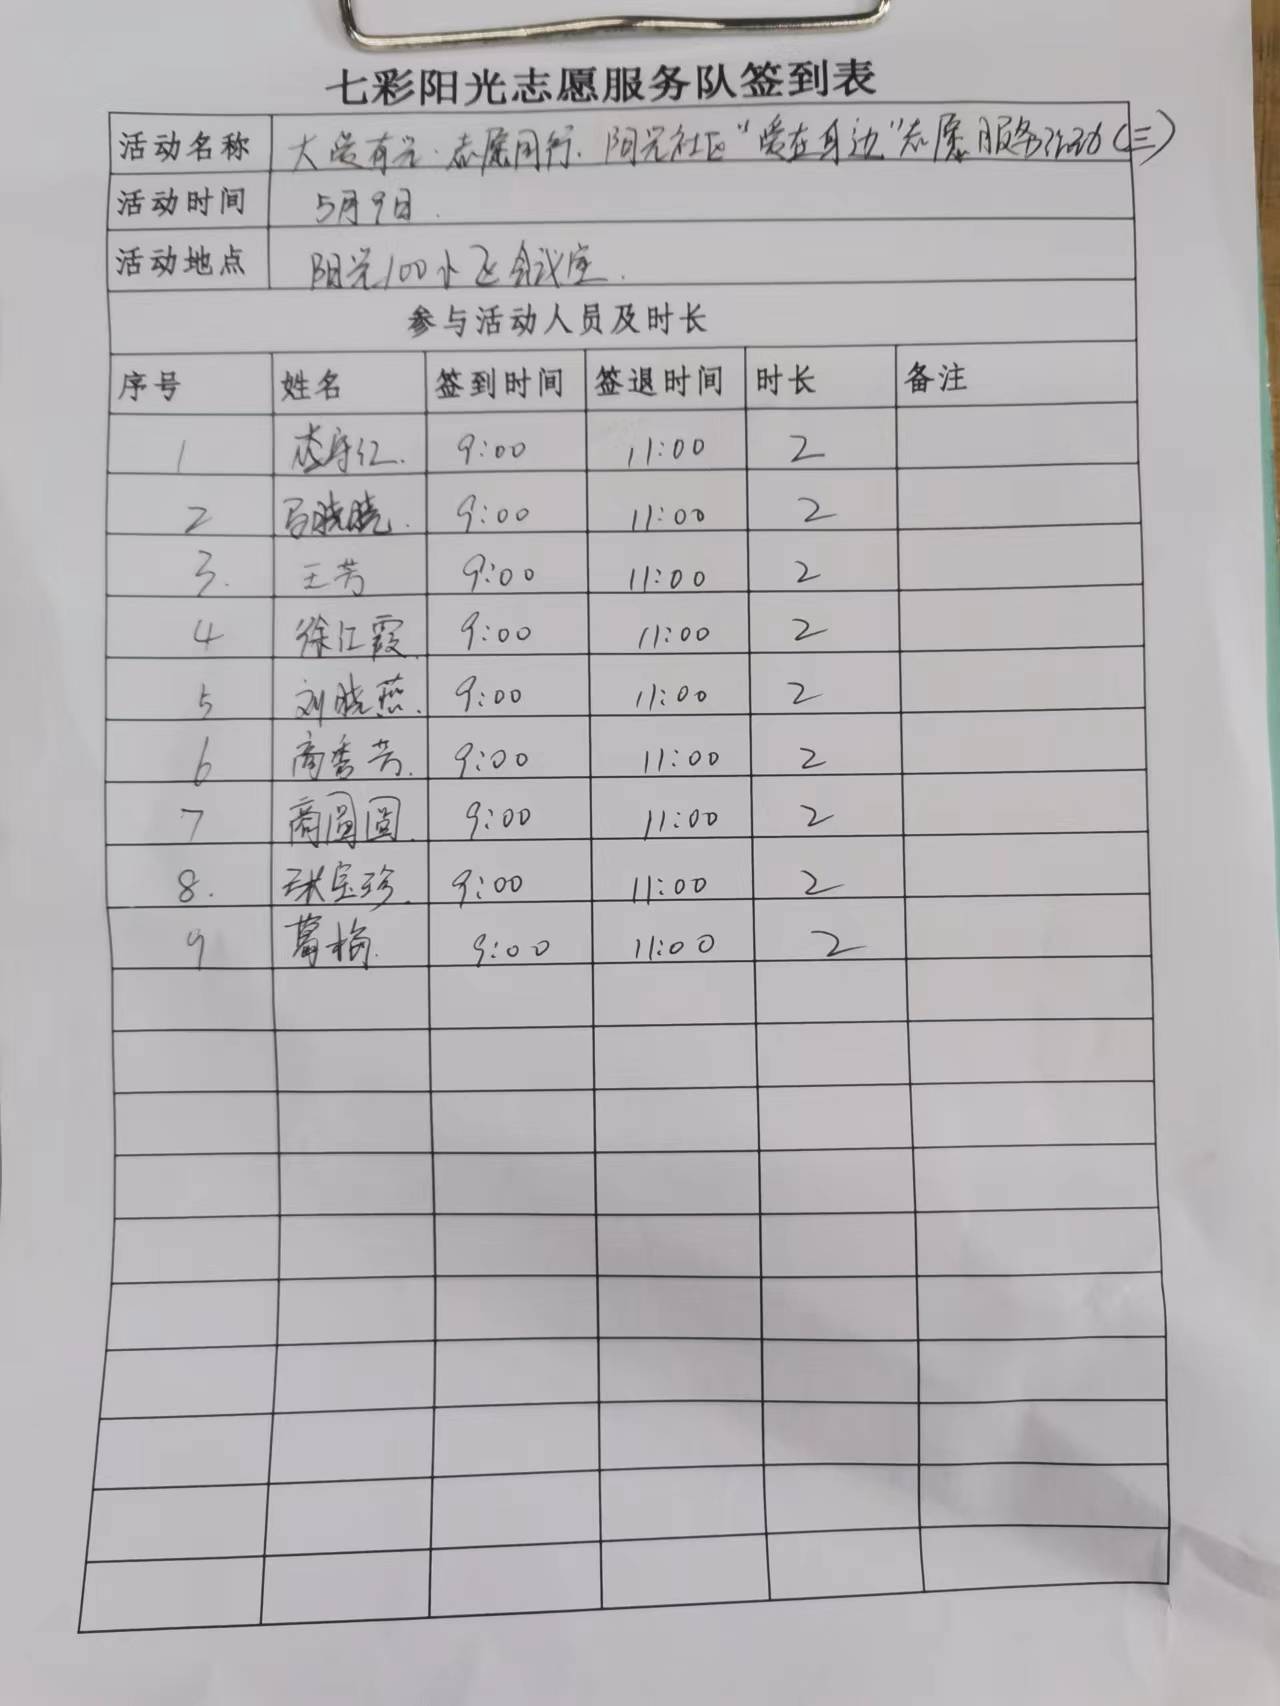 七彩阳光志愿服务队签到表
活动名称 大爱有光·志愿同行.阳光社区"爱在身边"志愿服务活动(三)
活动时间 5月9日.
活动地点 阳光100小区会议室.
参与活动人员及时长
序号 姓名 签到时间 签退时间 时长 备注
1 9:00 11:00 2
2 马晓晓. 9:00 11:00 2
3. 王芳 9:00 11:00 2
4 徐江霞. 9:00 11:00 2
5 刘晓燕. 9:00 11:00 2
6 商秀芳. 9:00 11:00 2
7 商圆圆. 9:00 11:00 2
8. 张宝珍. 9:00 11:00 2
9 葛梅. 9:00 11:00 2